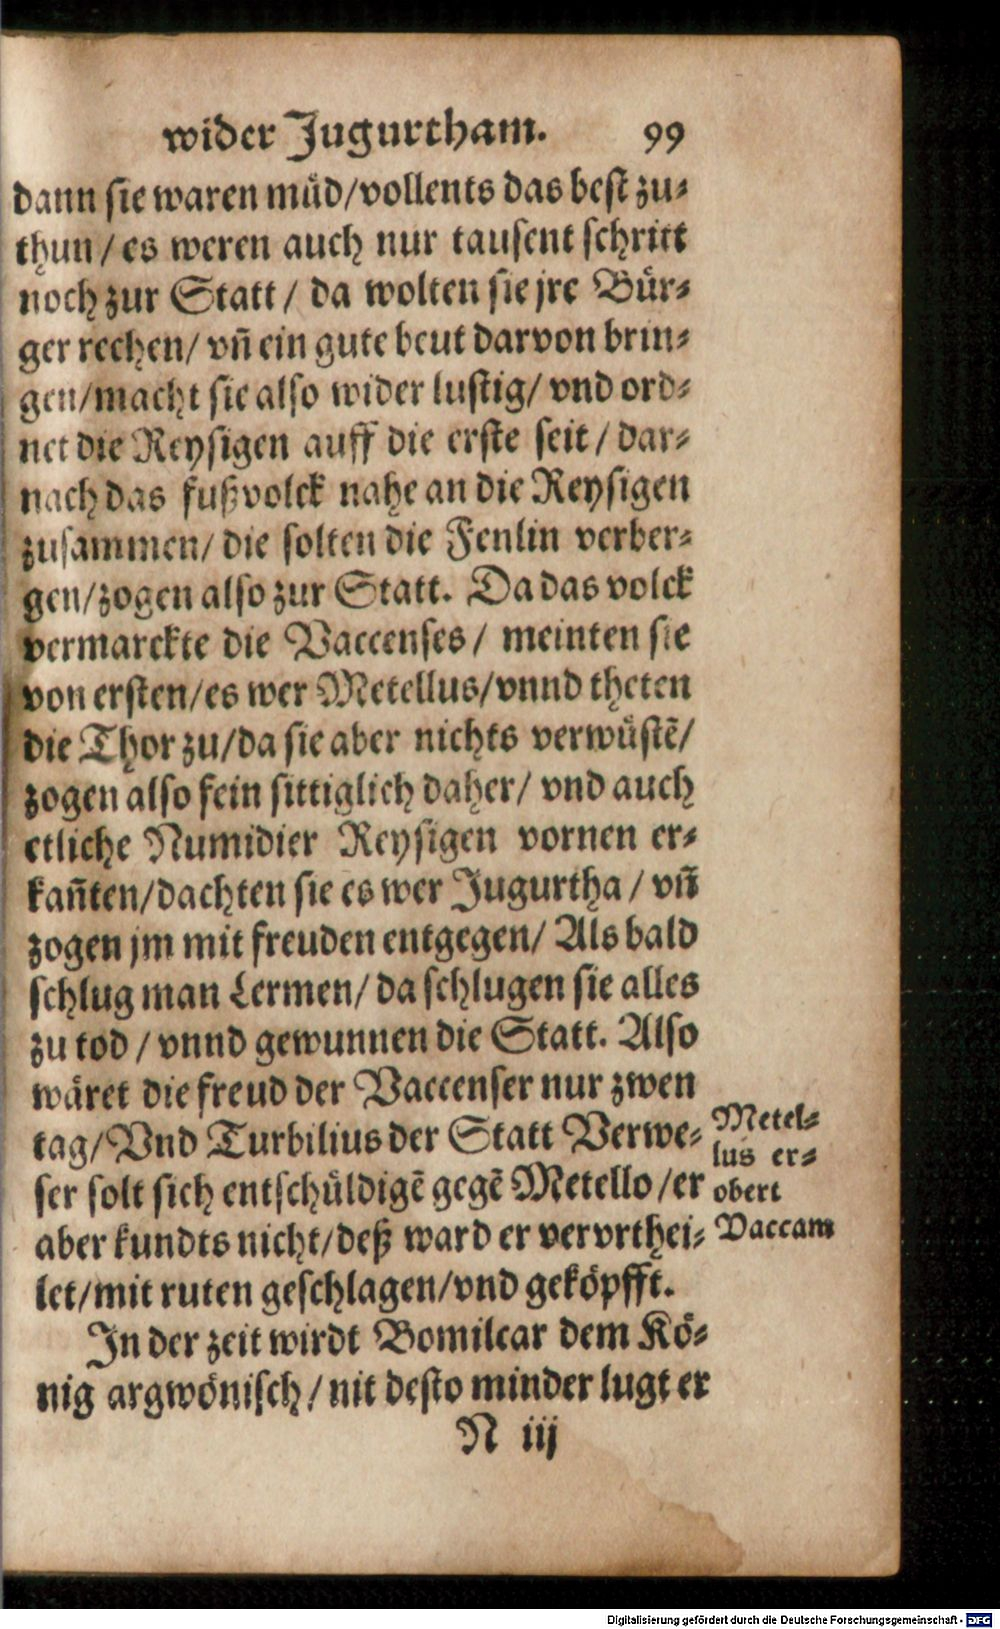 wider Jugurtham. 99
dann sie waren müd/vollents das best zu⸗
thun/es weren auch nur tausent schritt
noch zur Statt/ da wolten sie jre Bür⸗
ger rechen/ vñ ein gute beut darvon brin⸗
gen/macht sie also wider lustig/ vnd ord⸗
net die Reysigen auff die erste seit/ dar⸗
nach das fußvolck nahe an die Reysigen
zusammen/ die solten die Fenlin verber⸗
gen/zogen also zur Statt. Da das volck
vermarckte die Vaccenses/ meinten sie
von ersten/es wer Metellus/vnnd theten
die Thor zu/da sie aber nichts verwüstẽ/
zogen also fein sittiglich daher/ vnd auch
etliche Numidier Reysigen vornen er⸗
kañten/dachten sie es wer Jugurtha/ vñ
zogen jm mit freuden entgegen/ Als bald
schlug man Lermen/ da schlugen sie alles
zu tod/ vnnd gewunnen die Statt. Also
wäret die freud der Vaccenser nur zwen
tag/Vnd Turbilius der Statt Verwe⸗
ser solt sich entschüldigẽ gegẽ Metello/er
aber kundts nicht/deß ward er vervrthei⸗
let/mit ruten geschlagen/vnd geköpfft.
Metel⸗
lus er⸗
obert
Vaccam
In der zeit wirdt Bomilcar dem Kö⸗
nig argwönisch/nit desto minder lugt er
N iij
Digitalisierung gefördert durch die Deutsche Forschungsgemeinschaft - DFG